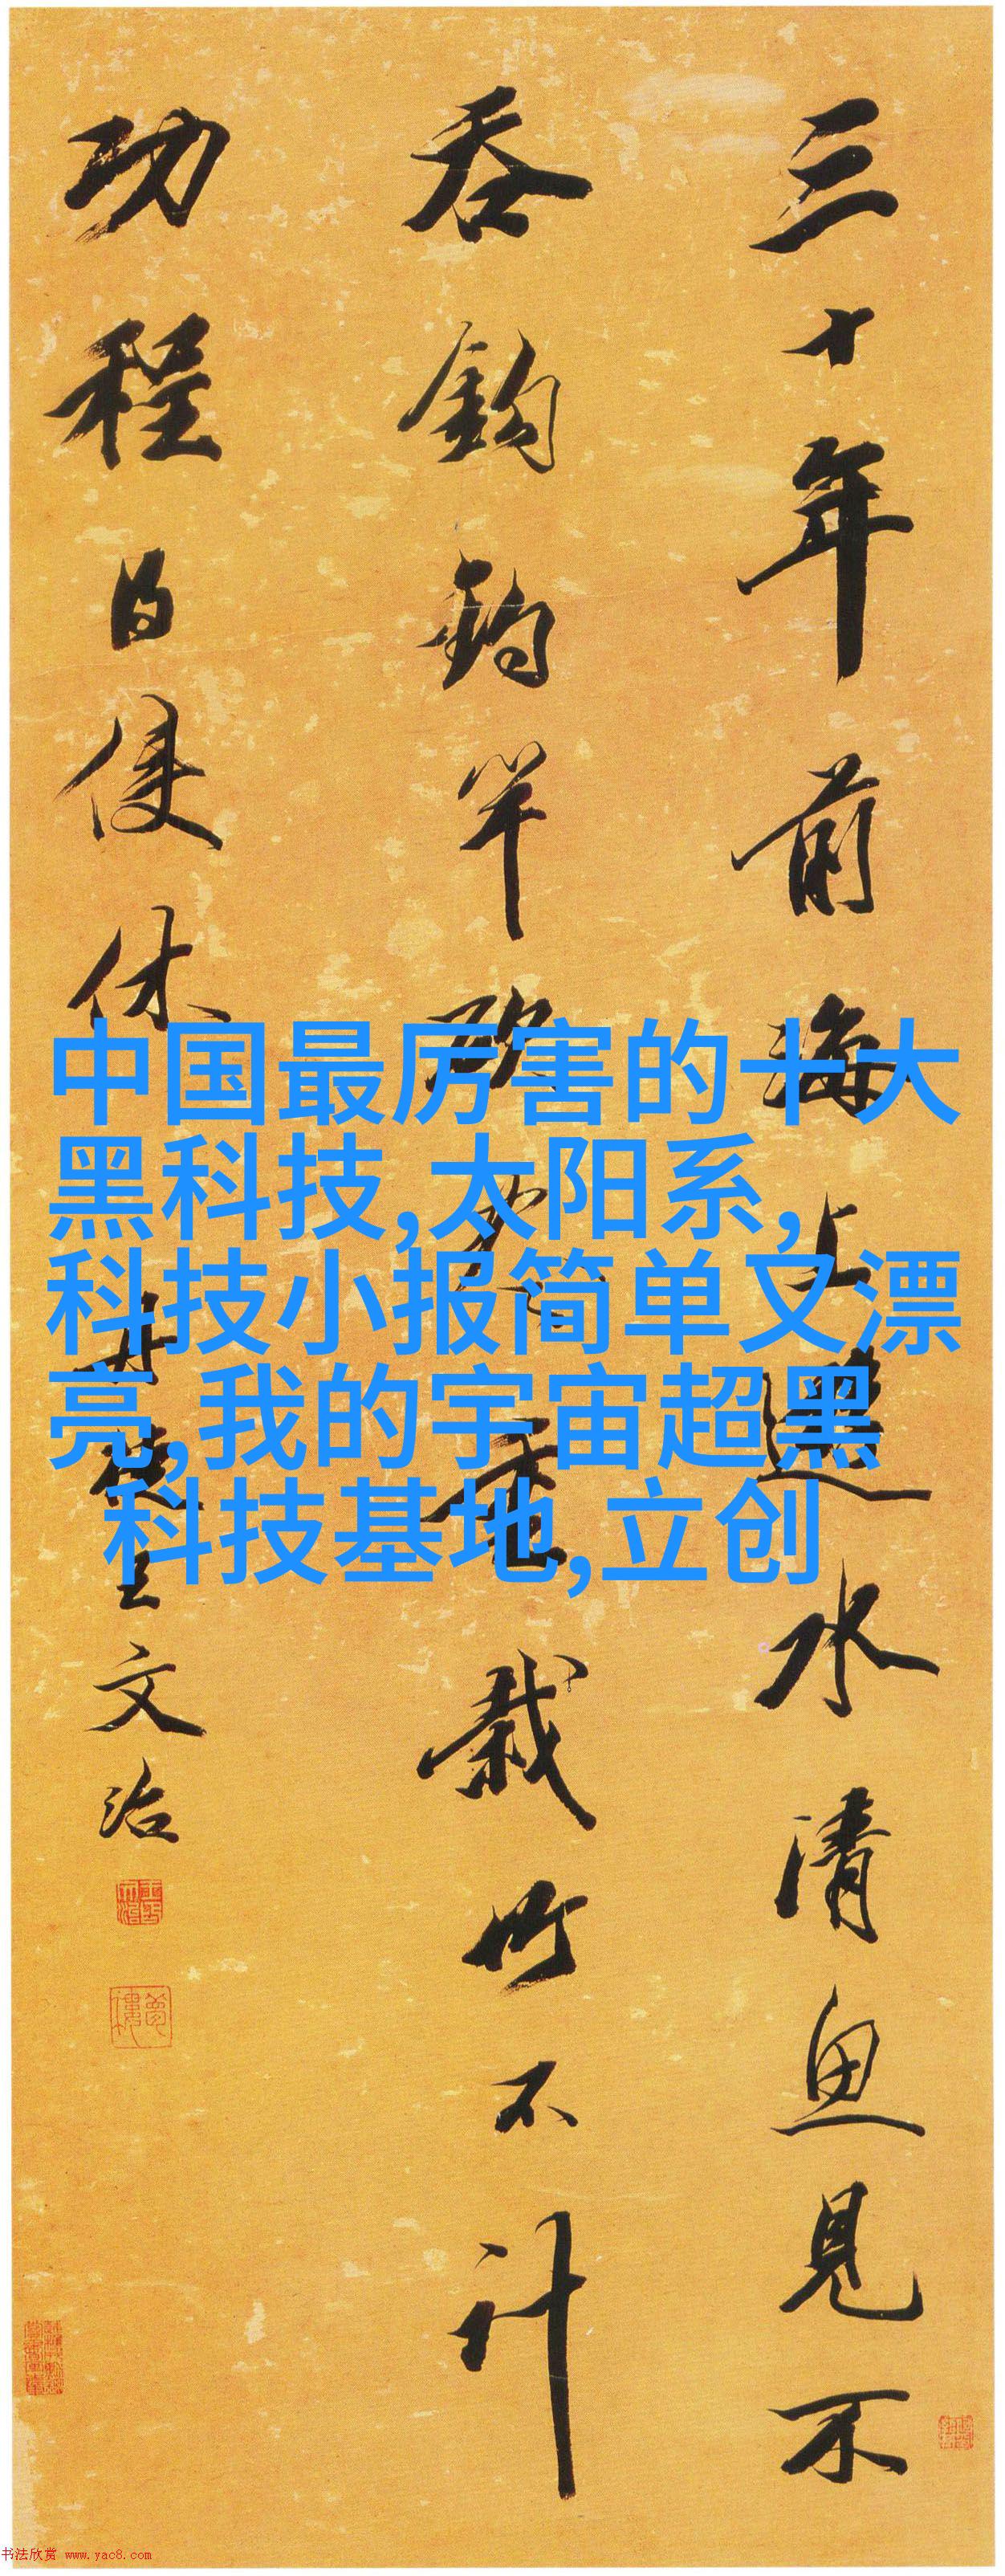 三十年前海上遊水清魚見不
吞鈎釣竿斫盡重栽竹不計
功程得便休
丹徒王文治
中国最厉害的十大
黑科技,太阳系,
科技小报简单又漂
亮,我的宇宙超黑
科技基地,立创
书法欣赏 www.yac8.com